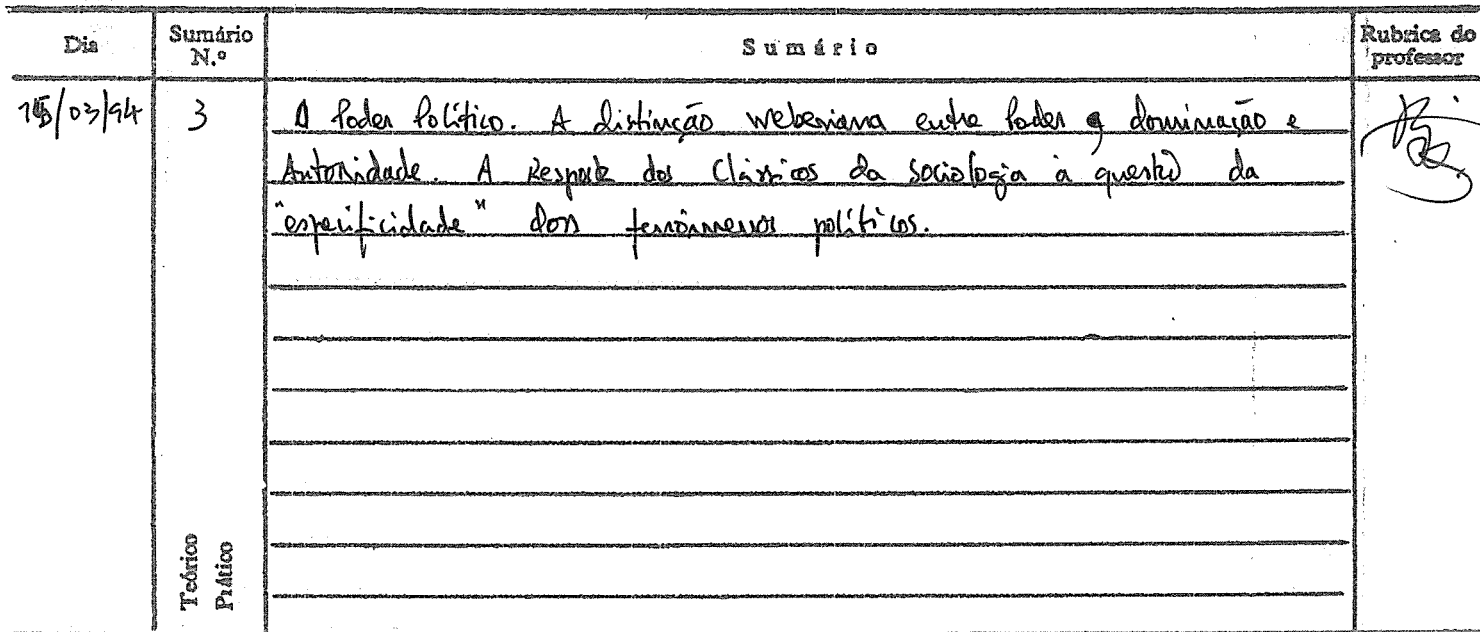 Dia Sumário N.º Sumário Rubrica do professor
15/03/94 3 O Poder Político. A distinção weberiana entre Poder, dominação e
Autoridade. A Resposta dos Clássicos da sociologia à questão da
"especificidade" dos fenómenos políticos.
Teórico
Prático